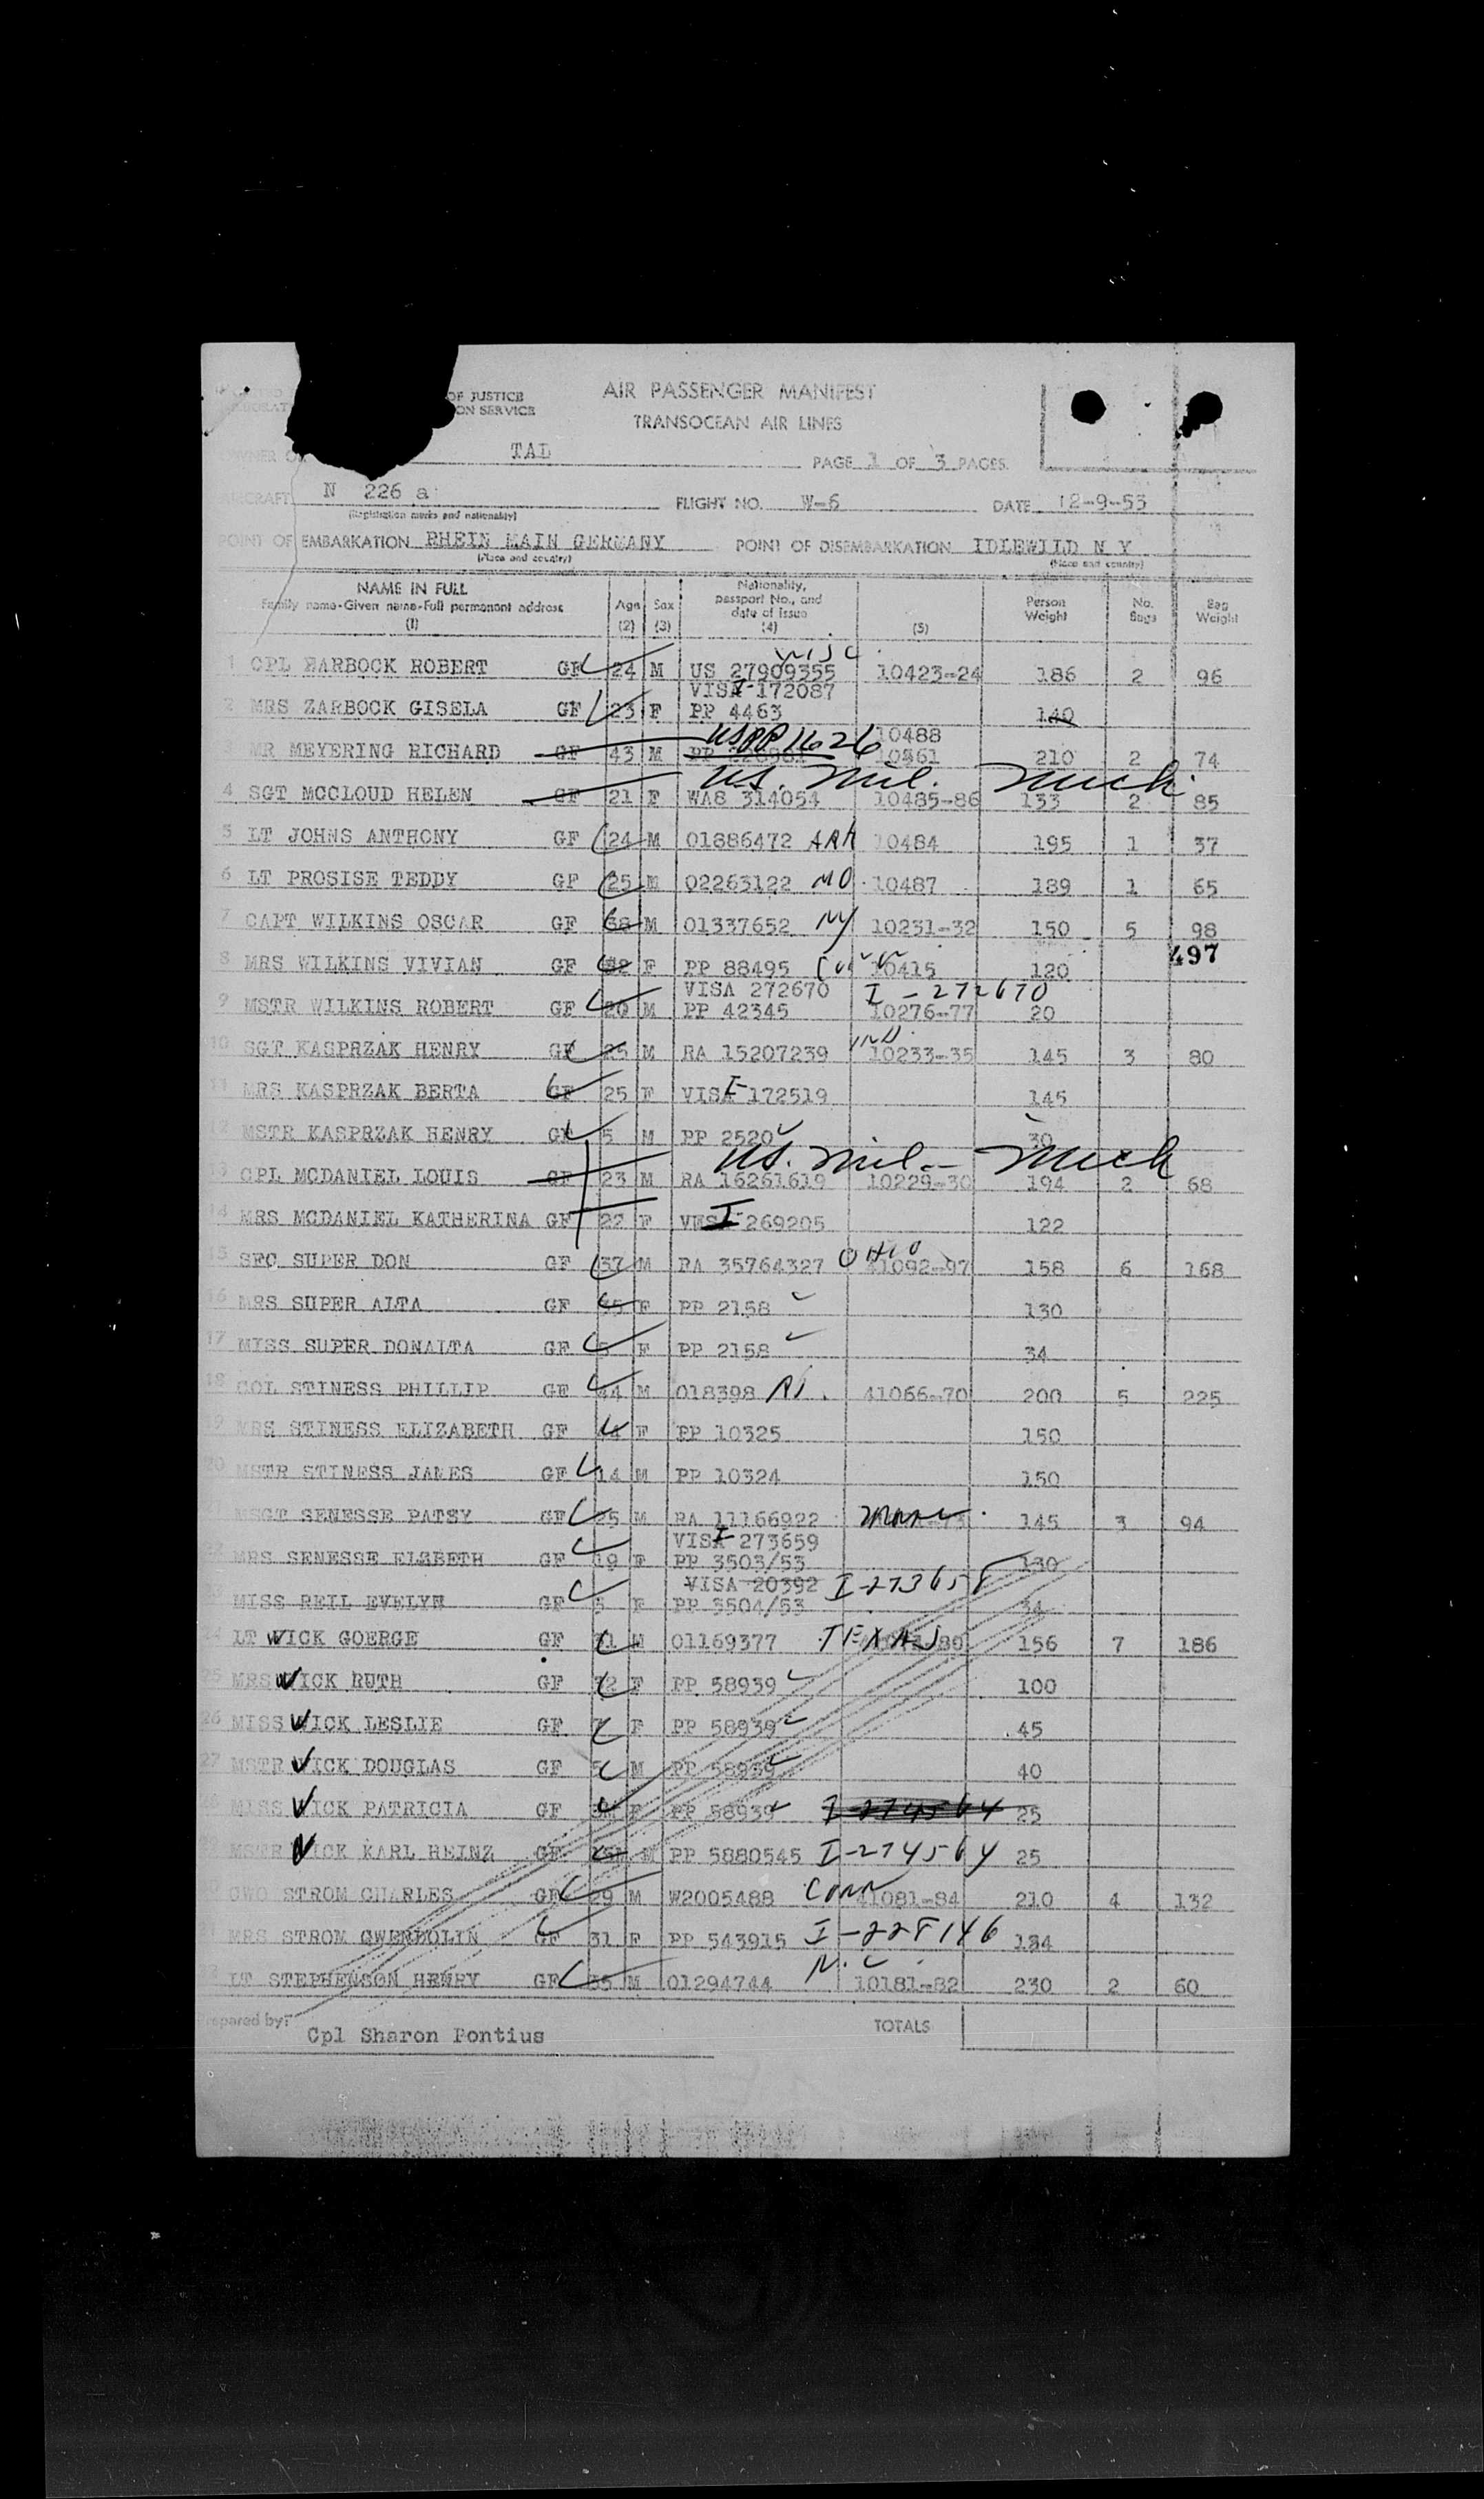 OF JUSTICE
ON SERVICE
AIR PASSENGER MANIFEST
TRANSOCEAN AIR LINES
TAL
PAGE 1 OF 3 PAGES
AIRCRAFT N 226 a FLIGHT NO. W-6 DATE 12-9-53
(Registration marks and nationality)
POINT OF EMBARKATION RHEIN MAIN GERMANY POINT OF DISEMBARKATION IDLEWILD N Y
(Place and country) (Place and country)
NAME IN FULL
Family name-Given name-Full permanent address
(1)
Age
(2)
Sex
(3)
Nationality,
passport No., and
date of issue
(4)
(5)
Person
Weight
No.
Bags
Bag
Weight
WISC
1 CPL ZARBOCK ROBERT GF 24 M US 27909355 10423-24 186 2 96
VISA I-172087
2 MRS ZARBOCK GISELA GF 23 F PP 4463 140
US PP 11626 10488
3 MR MEYERING RICHARD GF 43 M PP 10461 210 2 74
U.S. Mil. Mich
4 SGT MCCLOUD HELEN GF 21 F WA8 314054 10485-86 133 2 85
5 LT JOHNS ANTHONY GF 24 M 01886472 ARK 10484 195 1 37
6 LT PROSISE TEDDY GF 25 M 02263122 MO. 10487 189 1 65
7 CAPT WILKINS OSCAR GF 38 M 01337652 NY 10231-32 150 5 98
497
8 MRS WILKINS VIVIAN GF F PP 88495 10415 120
VISA 272670 I-272670
9 MSTR WILKINS ROBERT GF 20 M PP 42345 10276-77 20
IND
10 SGT KASPRZAK HENRY GF 25 M RA 15207239 10233-35 145 3 80
11 MRS KASPRZAK BERTA GF 25 F VISA I-172519 145
12 MSTR KASPRZAK HENRY GF 5 M PP 2520 30
U.S. Mil. - Mich
13 CPL MCDANIEL LOUIS GF 23 M RA 16261619 10229-30 194 2 68
14 MRS MCDANIEL KATHERINA GF 22 F I 269205 122
15 SFC SUPER DON GF 37 M RA 35764327 OHIO 41092-97 158 6 168
16 MRS SUPER ALTA GF 35 F PP 2158 130
17 MISS SUPER DONALTA GF 5 F PP 2158 34
18 COL STINESS PHILLIP GF 44 M 018398 RI. 41066-70 200 5 225
19 MRS STINESS ELIZABETH GF 44 F PP 10325 150
20 MSTR STINESS JAMES GF 14 M PP 10324 150
21 MSGT SENESSE PATSY GF 25 M RA 11166922 145 3 94
VISA I 273659
22 MRS SENESSE ELSBETH GF 19 F PP 3503/53 130
VISA 20392 I-273658
23 MISS REIL EVELYN GF 5 F PP 3504/53 34
24 LT WICK GOERGE GF 31 M 01169377 TEXAS 156 7 186
25 MRS WICK RUTH GF 32 F PP 58939 100
26 MISS WICK LESLIE GF 7 F PP 58939 45
27 MSTR WICK DOUGLAS GF 5 M PP 58939 40
28 MISS WICK PATRICIA GF F PP 58939 I-274564 25
29 MSTR WICK KARL HEINZ GF M PP 5880545 I-274564 25
30 CWO STROM CHARLES GF 29 M W2005488 CONN 41081-84 210 4 132
31 MRS STROM GWENDOLIN GF 31 F PP 543915 I-228146 134
N.C.
32 LT STEPHENSON HENRY GF 35 M 01294744 10181-82 230 2 60
Prepared by: Cpl Sharon Pontius TOTALS